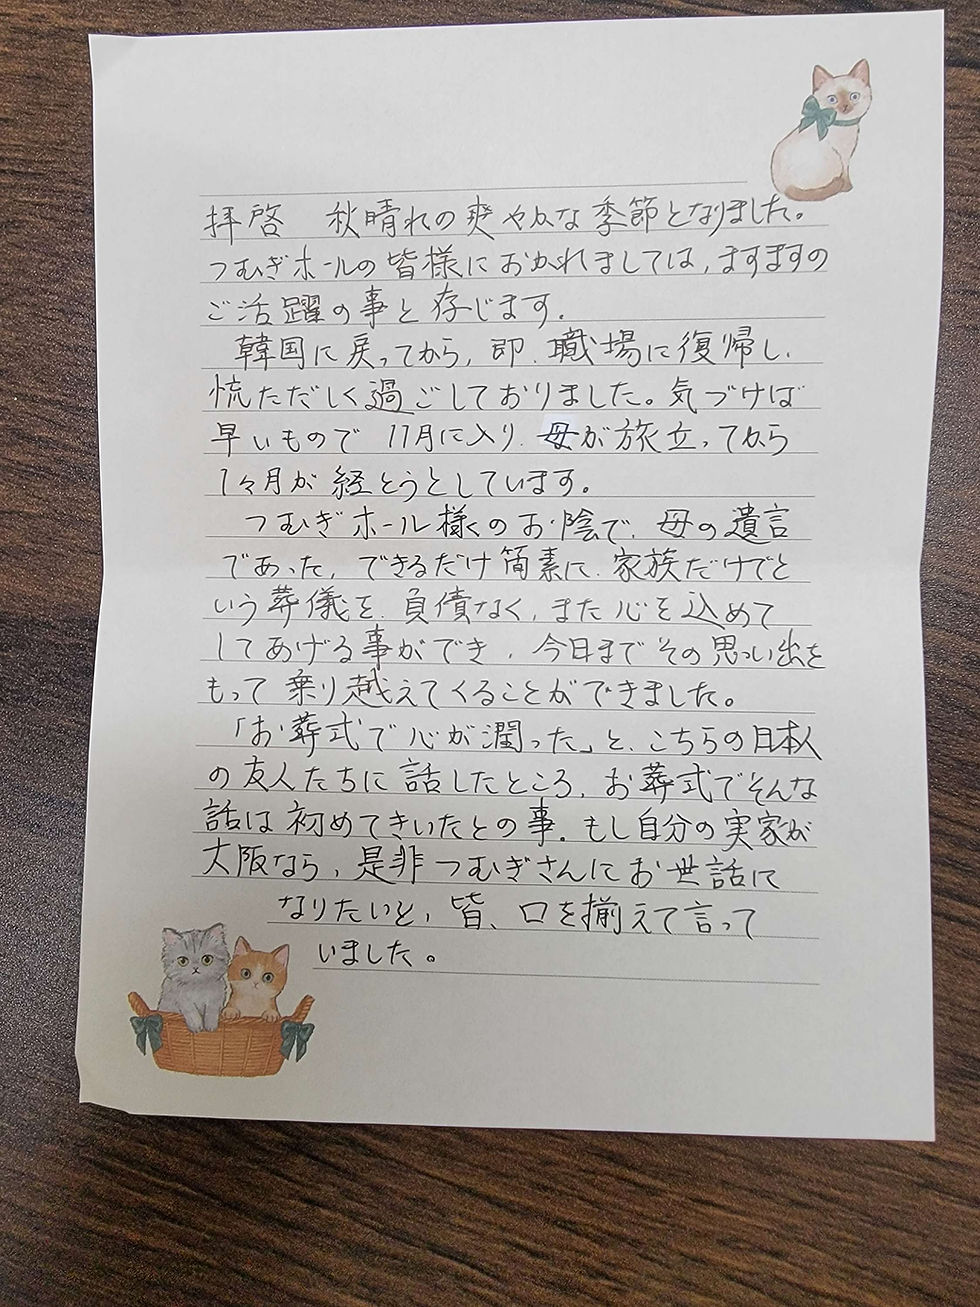 拝啓　秋晴れの爽やかな季節となりました。
つむぎホールの皆様におかれましては、ますますの
ご活躍の事と存じます。
韓国に戻ってから、即、職場に復帰し、
慌ただしく過ごしておりました。気づけば
早いもので 11月に入り、母が旅立ってから
1ヶ月が経とうとしています。
つむぎホール様のお陰で、母の遺言
であった、できるだけ簡素に、家族だけでと
いう葬儀を、負債なく、また心を込めて
してあげる事ができ、今日までその思い出を
もって乗り越えてくることができました。
「お葬式で心が潤った」と、こちらの日本人
の友人たちに話したところ、お葬式でそんな
話は初めてきいたとの事。もし自分の実家が
大阪なら、是非つむぎさんにお世話に
なりたいと、皆、口を揃えて言って
いました。